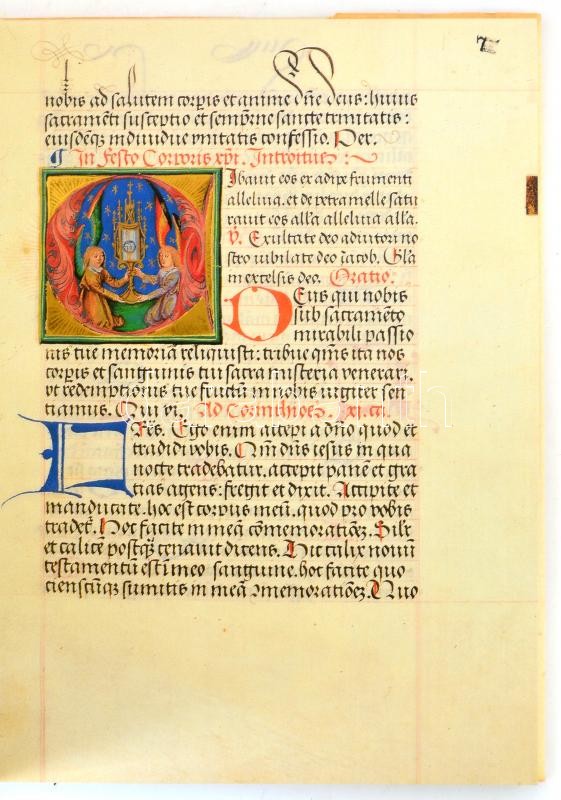 7
nobis ad salutem corpis et anime dn̄e deus: huius
sacramēti susceptio et sempit̄ne sancte trinitatis:
eiusdēqȝ indiuidue vnitatis confessio. Per.
¶ In festo Corporis xp̄i. Introitus:
Ibauit eos ex adipe frumenti
alleluia. et de petra melle satu
rauit eos all'a alleluia all'a.
V. Exultate deo adiutori no
stro iubilate deo iacob. Gl'a
in excelsis deo. Oratio.
DEus qui nobis
sub sacramēto
mirabili passio
nis tue memoriā reliquisti: tribue qm̄s ita nos
corpis et sanguinis tui sacra misteria venerari.
vt redemptionis tue fructū in nobis iugiter sen
tiamus. Qui vi. Ad Corinthioȝ. xi. ca.
FRēs. Ego enim accepi a dn̄o quod et
tradidi vobis. Qm̄ dn̄s iesus in qua
nocte tradebatur. accepit panē et gra
tias agens: fregit et dixit. Accipite et
manducate. hoc est corpus meū. quod pro vobis
tradet̄. Hoc facite in meā cōmemorationēȝ. Silr
et calicē postqȝ cenauit dicens. Hic calix nouū
testamentū est ī meo sanguine. hoc facite quo
ciēscūqȝ sumitis in meā ꝯmemorationēȝ. Quo